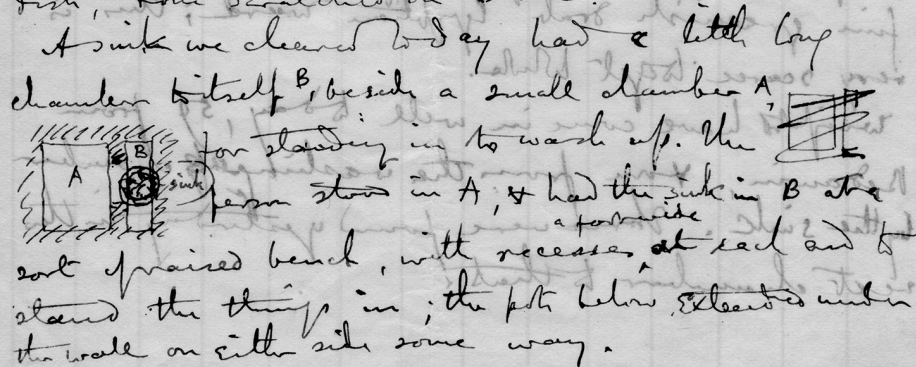 A sink we cleared to-day had a little long
chamber to itself B, beside a small chamber A,
for standing in to wash up. The
A B sink
person stood in A, & had the sink in B at a
a foot wide
sort of raised bench, with recesses at each end to
stand the things in; the pots below extended under
the wall on either side some way.